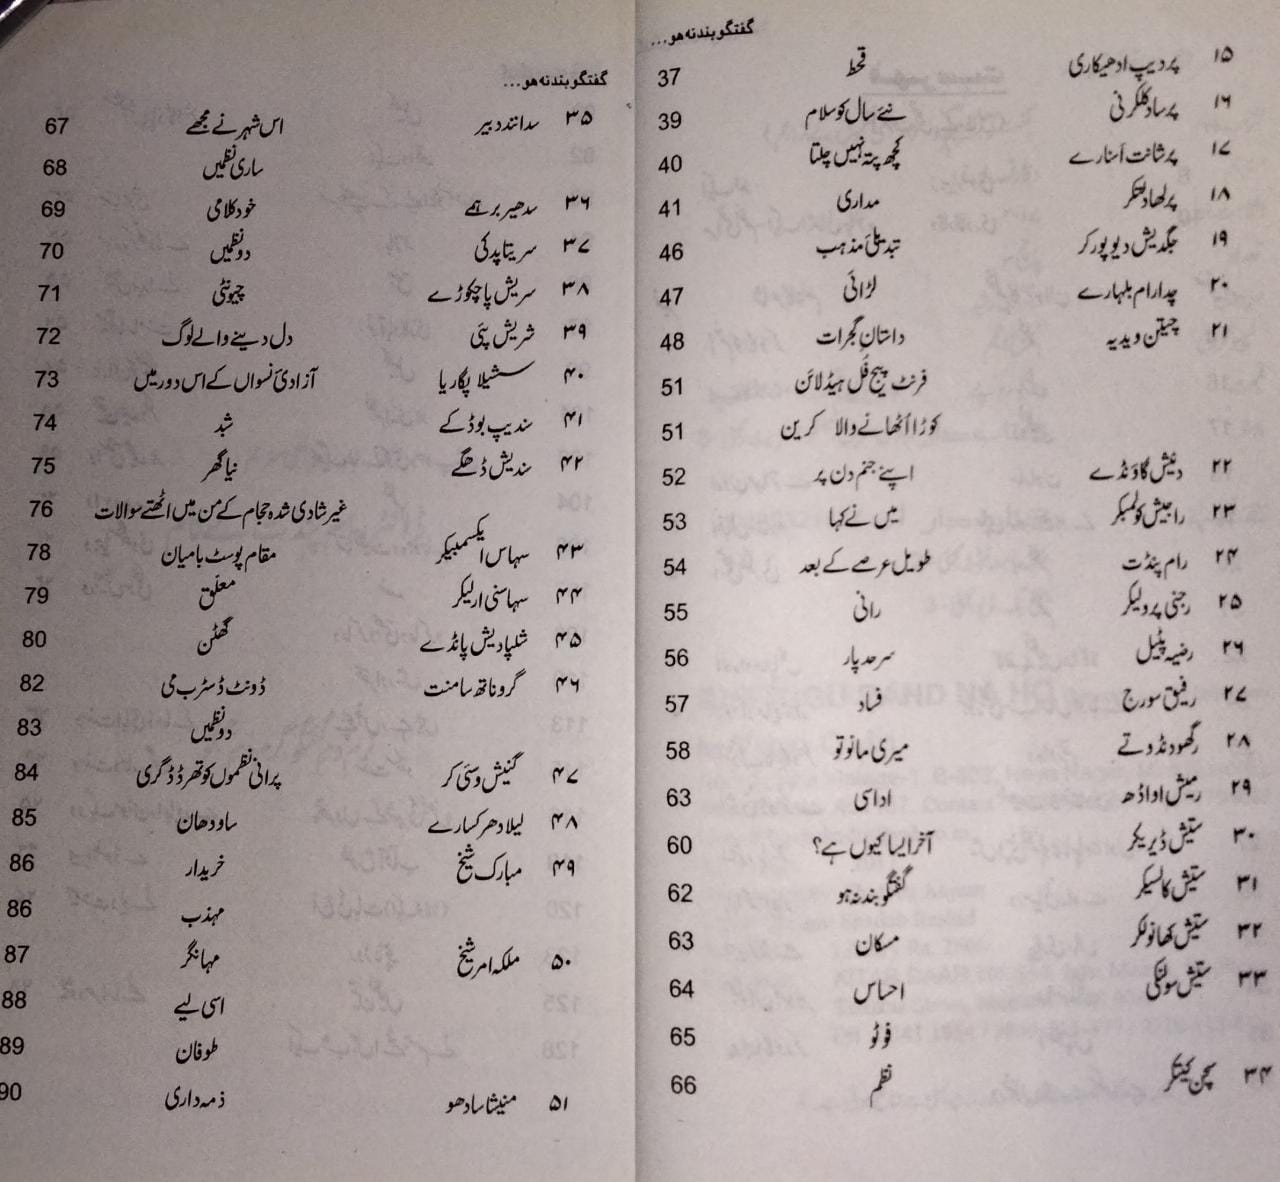 گفتگو بند نہ ہو...
۱۵ پردیپ ادھیکاری قحط 37
۱۶ پرساد کلکرنی نئے سال کو سلام 39
۱۷ پرشانت اَسنارے کچھ پتہ نہیں چلتا 40
۱۸ پرلھاد لتکر مداری 41
۱۹ جگدیش دیوپورکر تبدیلیٔ مذہب 46
۲۰ چدارام بلہارے لڑائی 47
۲۱ چیتن ویدیہ داستانِ گجرات 48
فرنٹ پیج فُل ہیڈلائن 51
کوڑا اُٹھانے والا کرین 51
۲۲ دنیش گاونڈے اپنے جنم دن پر 52
۲۳ راجیش کولمبکر میں نے کہا 53
۲۴ رام پنڈت طویل عرصے کے بعد 54
۲۵ رجنی پرولیکر رانی 55
۲۶ رضیہ پٹیل سرحد پار 56
۲۷ رفیق سورج فساد 57
۲۸ رگھو دنڈوتے میری مانو تو 58
۲۹ رمیش اواڈھ اداسی 63
۳۰ ستیش ڈیریکر آخر ایسا کیوں ہے؟ 60
۳۱ ستیش کالسیکر گفتگو بند نہ ہو 62
۳۲ ستیش کھانولکر مسکان 63
۳۳ ستیش سولنکی احساس 64
فوٹو 65
۳۴ سچن کیتکر نظم 66
گفتگو بند نہ ہو...
۳۵ سدانند دبیر اس شہر نے مجھے 67
ساری نظمیں 68
۳۶ سدھیر برہمے خودکلامی 69
۳۷ سریتا پدکی دو نظمیں 70
۳۸ سریش پاچکوڑے چیونٹی 71
۳۹ شریش پئی دل دینے والے لوگ 72
۴۰ سشیلا پگاریا آزادیٔ نسواں کے اس دور میں 73
۴۱ سندیپ بوڈکے شبد 74
۴۲ سندیش ڈھگے نیا گھر 75
غیر شادی شدہ حجام کے من میں اٹھتے سوالات 76
۴۳ سہاس ایکسمبیکر مقام پوسٹ بامیان 78
۴۴ سہاسنی ارلیکر معلّق 79
۴۵ شلپا دیش پانڈے گھٹن 80
۴۶ گروناتھ سامنت ڈونٹ ڈسٹرب می 82
دو نظمیں 83
۴۷ گنیش وسئی کر پرانی نظموں کو تھرڈ ڈگری 84
۴۸ لیلادھر کسارے ساودھان 85
۴۹ مبارک شیخ خریدار 86
مہذب 86
۵۰ ملکہ امر شیخ مہانگر 87
اسی لیے 88
طوفان 89
۵۱ منیشا سادھو ذمہ داری 90